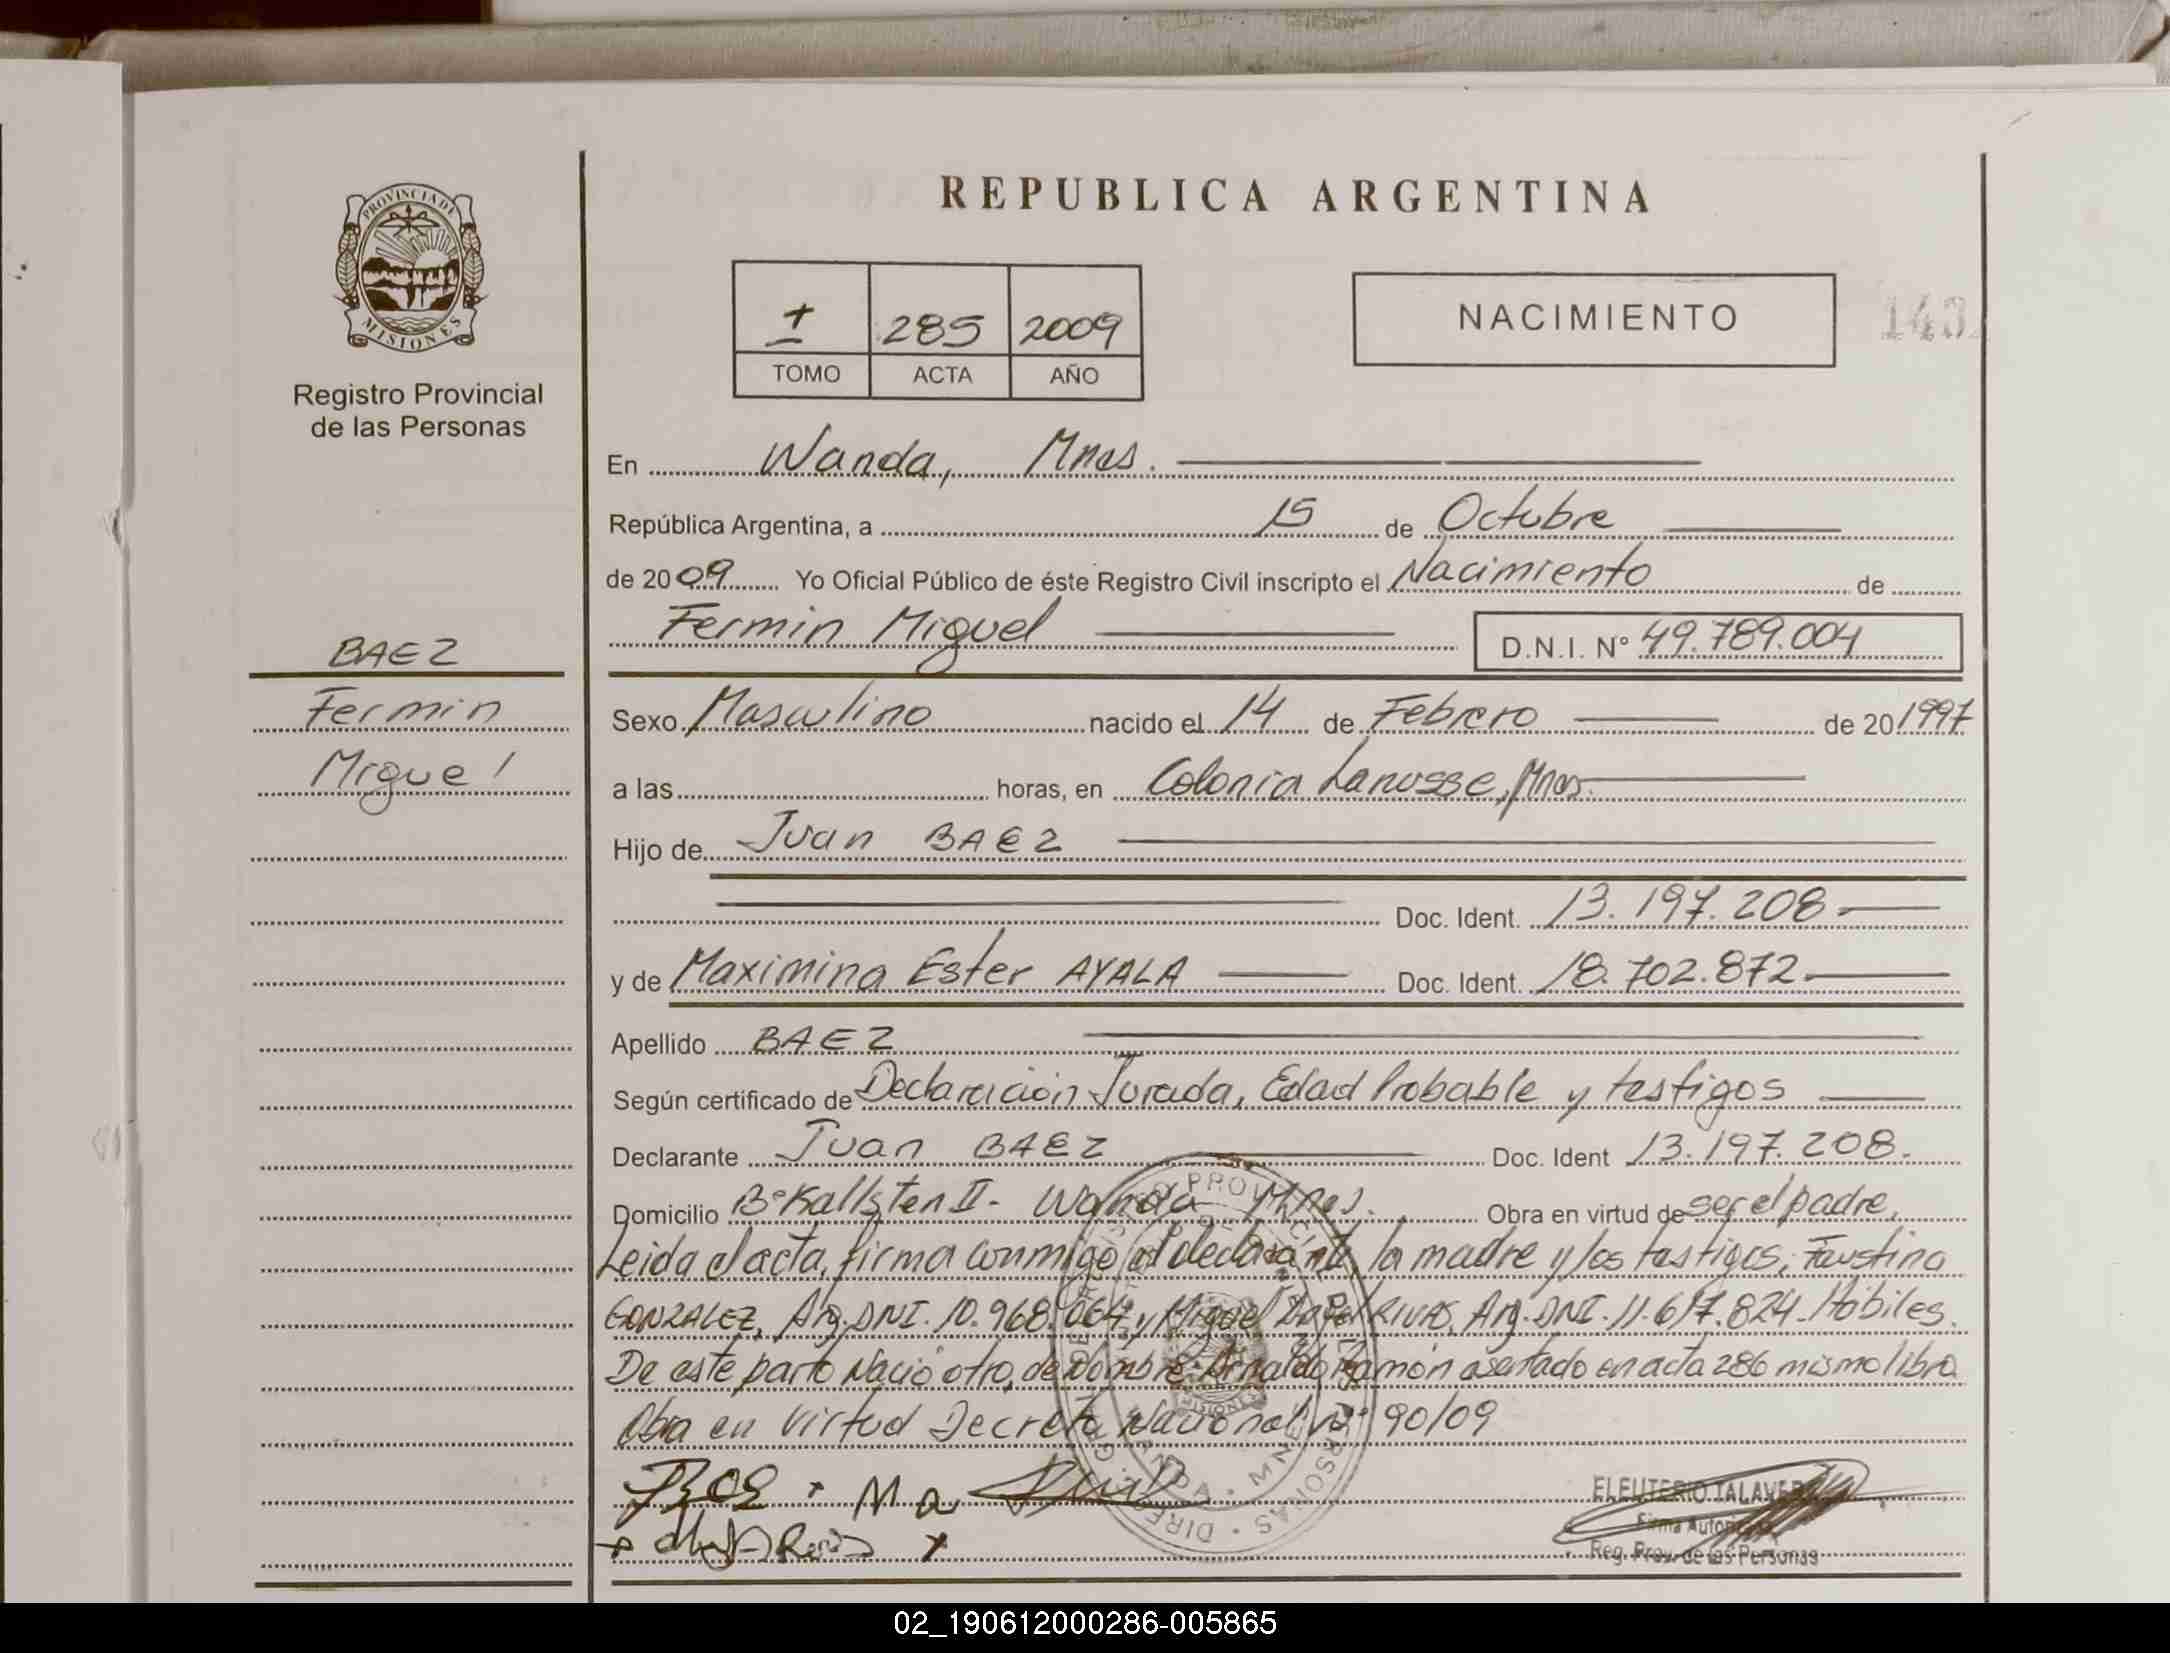 REPUBLICA ARGENTINA
PROVINCIA DE
MISIONES
Registro Provincial
de las Personas
285 2009
TOMO ACTA AÑO
NACIMIENTO
En Wanda, Mnes.
República Argentina, a 15 de Octubre
de 2009 Yo Oficial Público de éste Registro Civil inscripto el Nacimiento de
Fermin Miguel D.N.I. N° 49.789.004
BAEZ
Fermin
Miguel
Sexo Masculino nacido el 14 de Febrero de 20 1997
a las horas, en Colonia Lanusse, Mnes.
Hijo de Juan BAEZ
Doc. Ident. 13.197.208
y de Maximina Ester AYALA Doc. Ident. 18.702.872
Apellido BAEZ
Según certificado de Declaración Jurada, Edad Probable y testigos
Declarante Juan BAEZ Doc. Ident 13.197.208.
Domicilio B° Kallsten II - Wanda Mnes. Obra en virtud de ser el padre,
Leida el acta, firma conmigo el declarante, la madre y los testigos; Faustino
GONZALEZ, Arg. DNI. 10.968.064 y Miguel RIVAS, Arg. DNI. 11.617.824. Hábiles.
De este parto Nació otro, de Nombre: Arnaldo Ramón asentado en acta 286 mismo libro
Obra en virtud Decreto Nacional N° 90/09
ELEUTERIO TALAVERA
Firma Autorizada
Reg. Prov. de las Personas
02_190612000286-005865